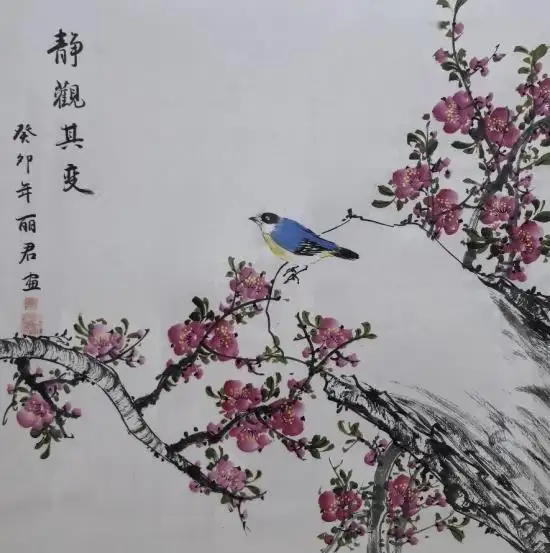 靜觀其變
癸卯年丽君画